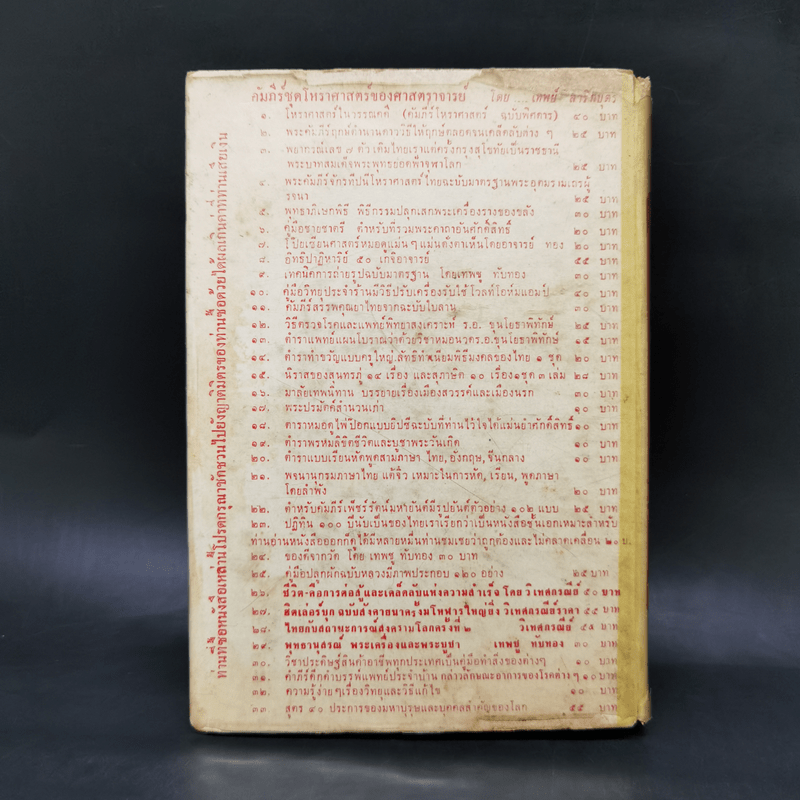 คัมภีร์ชุดโหราศาสตร์ของศาสตราจารย์ โดย ... เทพย์ สาริกบุตร
๑. โหราศาสตร์ในวรรณคดี (คัมภีร์โหราศาสตร์ ฉบับพิศดาร) ๔๐ บาท
๒. พระคัมภีร์ฤกษ์ตำนานดาววิธีให้ฤกษ์ตลอดจนเคล็ดลับต่าง ๆ ๒๕ บาท
๓. พยากรณ์เลข ๗ ตัว เดิมไทยเราแต่ครั้งกรุงสุโขทัยเป็นราชธานี
พระบาทสมเด็จพระพุทธยอดฟ้าจุฬาโลก ๒๕ บาท
๔. พระคัมภีร์จักรทีปนีโหราศาสตร์ไทยฉะบับมาตรฐานพระอุดมรามเถรผู้
รจนา ๒๕ บาท
๕. พุทธาภิเษกพิธี พิธีกรรมปลุกเสกพระเครื่องรางของขลัง ๓๐ บาท
๖. คู่มือชายชาตรี ตำหรับที่รวมพระคาถาอันศักดิ์สิทธิ์ ๒๐ บาท
๗. โป๊ยเซียนศาสตร์หมอดูแม่น ๆ แม่นดังตาเห็นโดยอาจารย์ ทอง ๒๐ บาท
๘. อิทธิปาฏิหาริย์ ๕๐ เกจิอาจารย์ ๕๕ บาท
๙. เทคนิคการถ่ายรูปฉบับมาตรฐาน โดยเทพชู ทับทอง ๓๐ บาท
๑๐. คู่มือวิทยุประจำร้านมีวิธีปรับเครื่องรับใช้ โวลท์โอห์มแอมป์ ๔๐ บาท
๑๑. คัมภีร์สรรพคุณยาไทยจากฉะบับใบลาน ๓๐ บาท
๑๒. วิธีตรวจโรคและแพทย์พิทยาสงเคราะห์ ร.อ. ขุนโยธาพิทักษ์ ๒๕ บาท
๑๓. ตำราแพทย์แผนโบราณว่าด้วยวิชาหมอนวด ร.อ.ขุนโยธาพิทักษ์ ๑๕ บาท
๑๔. ตำราทำขวัญแบบครูใหญ่.สิทธิทำเนียมพิธีมงคลของไทย ๑ ชุด ๒๐ บาท
๑๕. นิราสของสุนทรภู่ ๑๔ เรื่อง และสุภาษิต ๑๐ เรื่อง ๑ ชุด ๓ เล่ม ๒๘ บาท
๑๖. มาลัยเทพนิทาน บรรยายเรื่องเมืองสวรรค์และเมืองนรก ๓๐ บาท
๑๗. พระปรมัตถ์สำนวนเก่า ๑๐ บาท
๑๘. ตาราหมอดูไพ่ป๊อกแบบยิปซีฉะบับที่ท่านไว้ใจได้แม่นยำศักดิ์สิทธิ์ ๑๐ บาท
๑๙. ตำราพรหมลิขิตชีวิตและบูชาพระวันเกิด ๑๐ บาท
๒๐. ตำราแบบเรียนหัดพูดสามภาษา ไทย, อังกฤษ, จีนกลาง ๑๐ บาท
๒๑. พจนานุกรมภาษาไทย แต้จิ๋ว เหมาะในการหัด, เรียน, พูดภาษา
โดยลำพัง ๒๐ บาท
๒๒. ตำหรับคัมภีร์เพ็ชร์รัตน์มหายันต์มีรูปยันต์ตัวอย่าง ๑๐๒ แบบ ๒๕ บาท
๒๓. ปฏิทิน ๑๐๐ ปีนับเป็นของไทยเราเรียกว่าเป็นหนังสือชั้นเอกเหมาะสำหรับ
ท่านอ่านหนังสือออกก็ดูได้มีหลายหมื่นท่านชมเชยว่าถูกต้องและไม่คลาดเคลื่อน ๒๐ บ.
๒๔. ของดีจากวัด โดย เทพชู ทับทอง ๓๐ บาท
๒๕. คู่มือปลุกผักฉบับหลวงมีภาพประกอบ ๑๒๐ อย่าง ๒๕ บาท
๒๖. ชีวิต-คือการต่อสู้ และเคล็ดลับแห่งความสำเร็จ โดย วิเทศกรณีย์ ๕๐ บาท
๒๗. ฮิตเล่อร์บุก ฉบับสังคายนาครูงมโหฬารใหญ่ยิ่ง วิเทศกรณีย์ราคา ๕๕ บาท
๒๘. ไทยกับสถานะการณ์สงความโลกครั้งที่ ๒ วิเทศกรณีย์ ๕๑ บาท
๒๙. พุทธานุสรณ์ พระเครื่องและพระบูชา เทพชู ทับทอง ๓๐ บาท
๓๐. วิชาประดิษฐ์สินค้าอาชีพทุกประเภทเป็นคู่มือทำสิ่งของต่างๆ ๑๐ บาท
๓๑. คำภีร์ศึกดำบรรพ์แพทย์ประจำบ้าน กล่าวลักษณะอาการของโรคต่าง ๆ ๑๐ บาท
๓๒. ความรู้ง่ายๆเรื่องวิทยุและวิธีแก้ไข ๑๐ บาท
๓๓ สูตร ๔๐ ประการของมหาบุรุษและบุคคลสำคัญของโลก ๕๕ บาท
ท่านที่ซื้อหนังสือเหล่านี้โปรดกรุณาชักชวนไปยังญาติมิตรของท่านซื้อด้วยได้ผลเกินค่าที่ท่านเสียเงิน